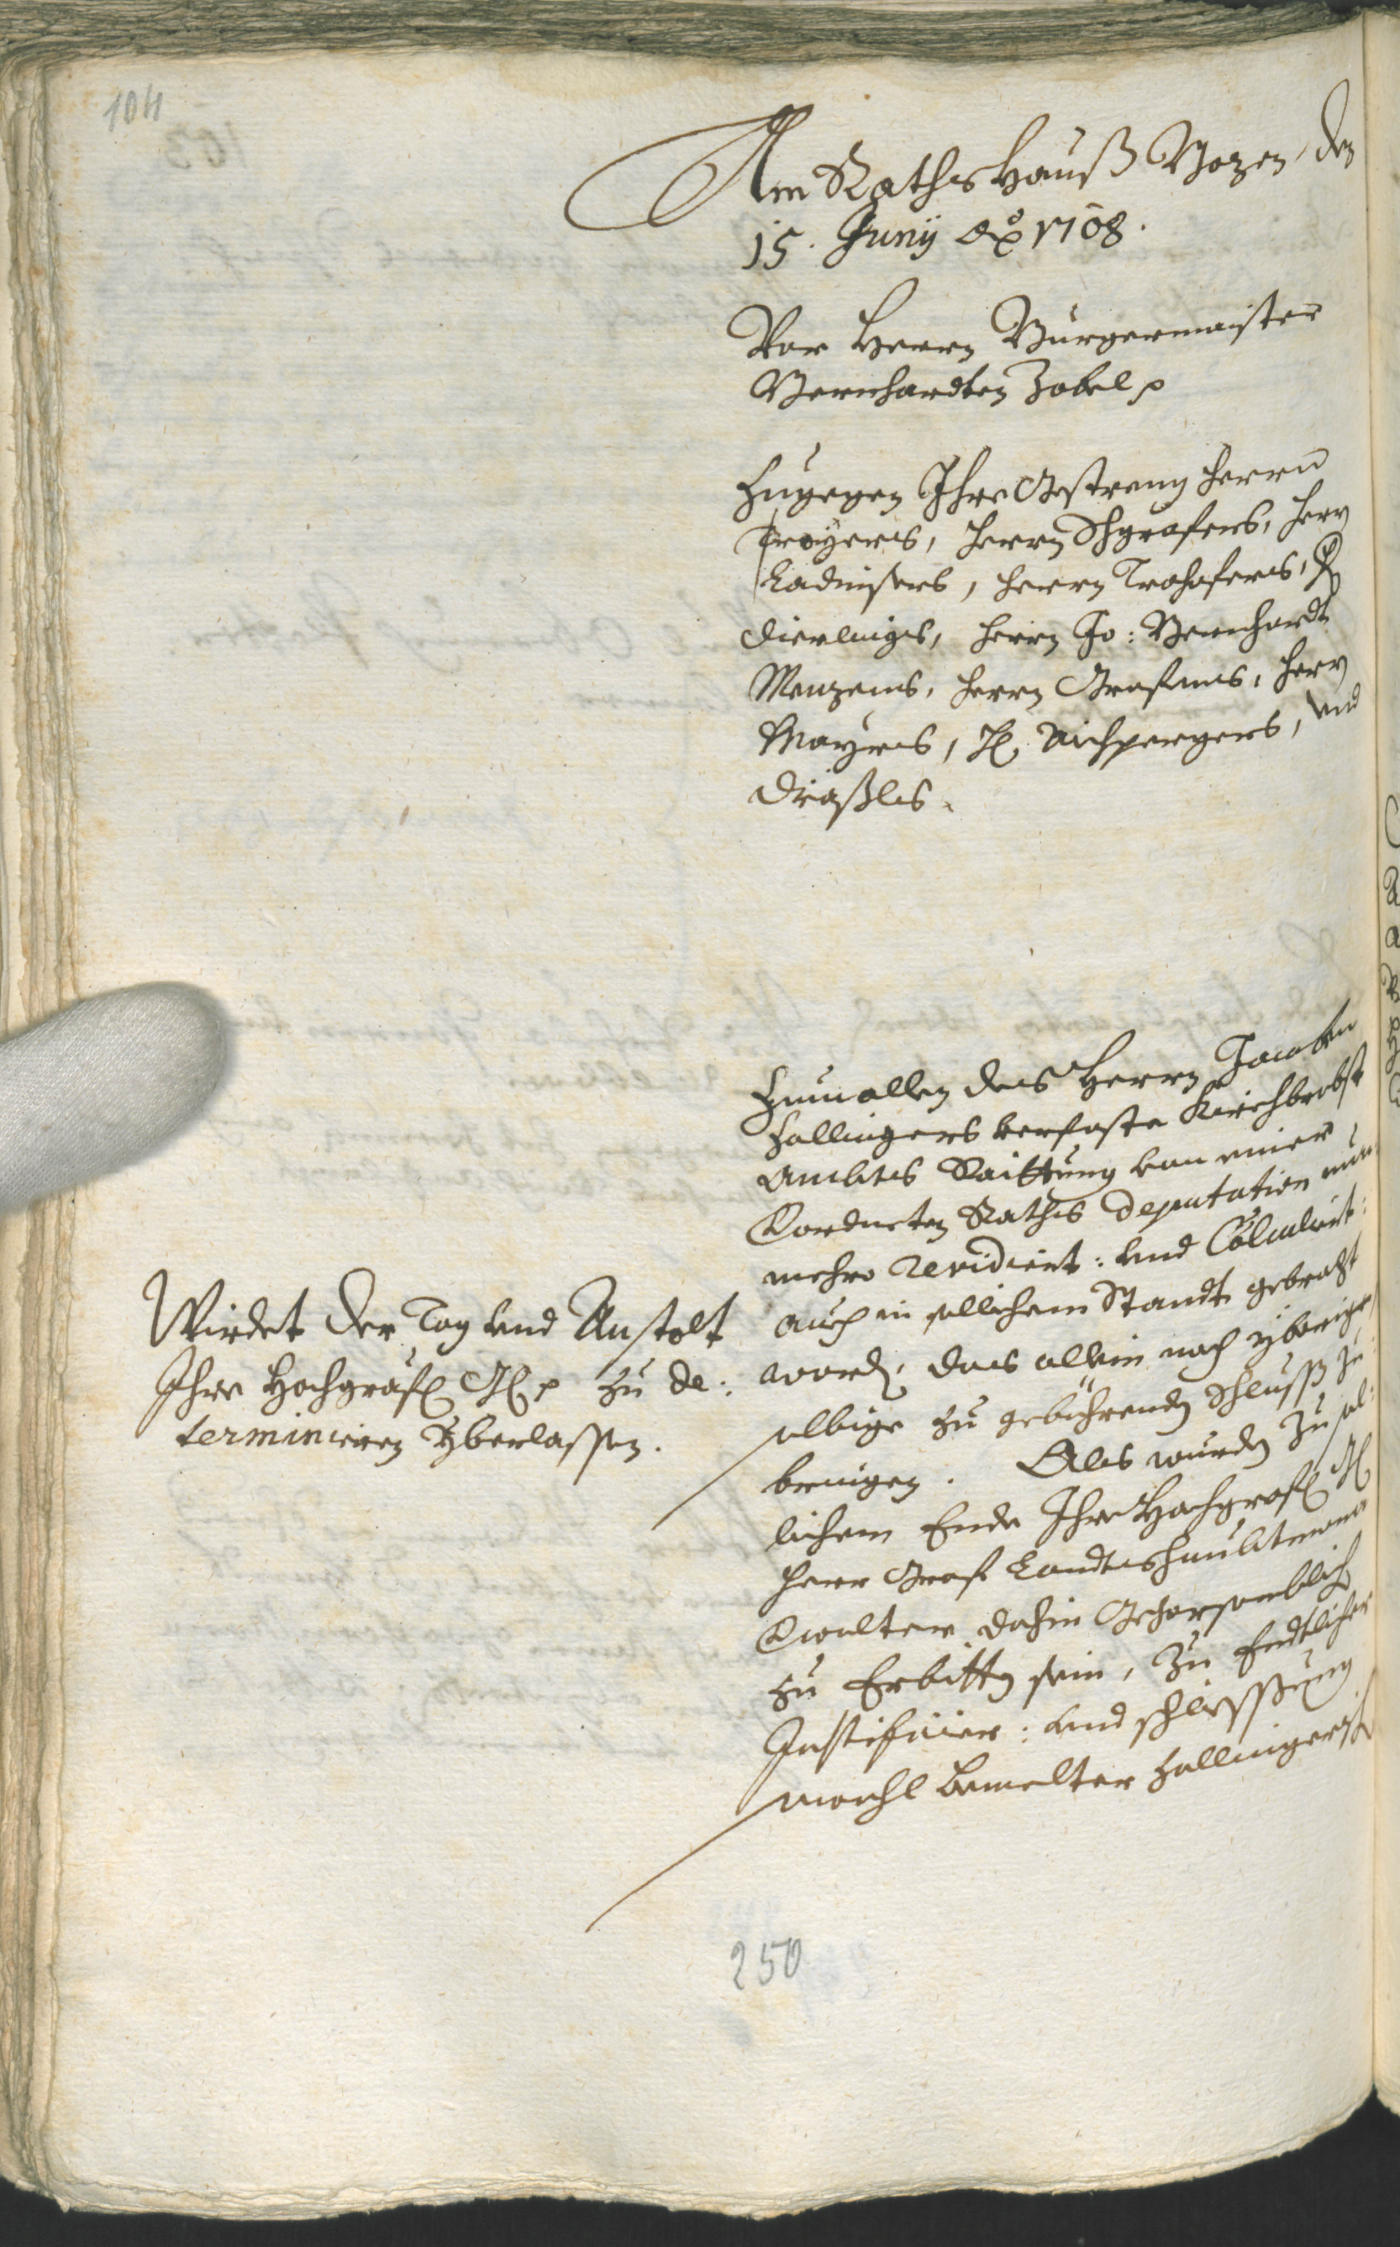 104
Am Raths Hauß Bozen, den
15. Juny ao 1708.
Vor Herrn Burgermaister
Bernhardten Zobel p
Zugegen Ihro Gestreng Herrn
Troyers, Herrn Schgrafers, Herrn
Ladurners, Herrn Trohofers, H
Dierlings, Herrn Jo: Bernhardt
Menzens, Herrn Grafens, Herrn
Mayrs, H. Aichpergers, und
Draßls.
Zumallen des Herrn Jacoben
Hallingers verfaste Kirchbrobst
Ambts Raittung von einer
Verordneten Raths Deputation nun
mehro revidiert: und Calculiert:
auch in sollichem Standt gebracht
word, das allein noch ybrig,
selbige zu gebührendem Schluss zu
bringen. Als wurden zu sol:
lichem Ende Ihro Hochgräfl G
Herr Graf Landtshaubtmans
Verwalter dahin Gehorsamblich
zu Erbitten sein, Zu Endtlicher
Justificier: und schliessung
wohl bemelter Hallingerisch
Wirdet der Tag und Anstalt
Ihro Hochgräfl G. p zu de:
terminieren yberlassen.
250